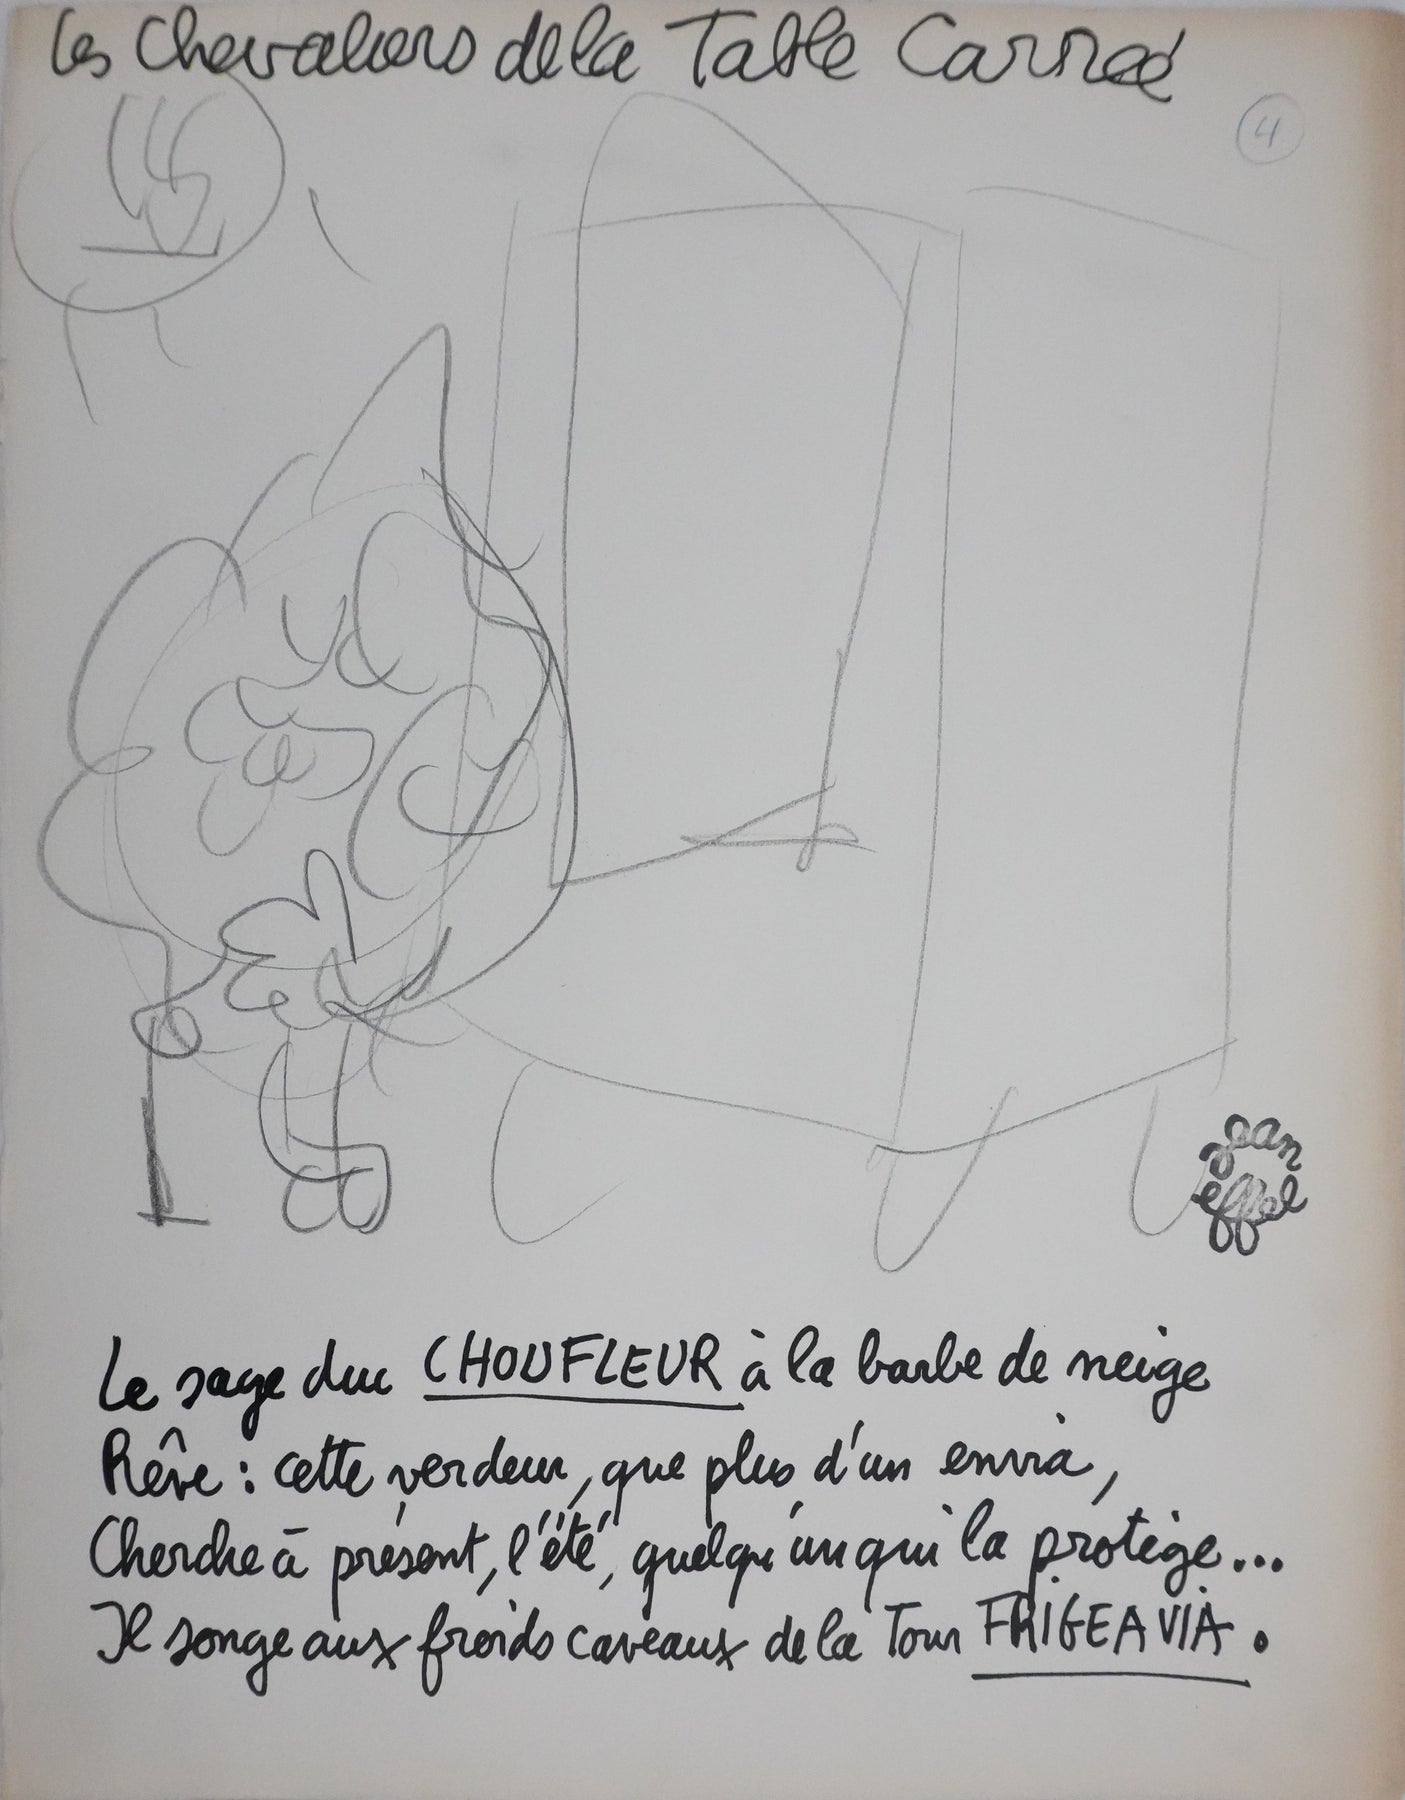 Les Chevaliers de la Table Carrée
4
jean
effel
Le sage duc CHOUFLEUR à la barbe de neige
Rêve : cette verdeur, que plus d'un envia,
Cherche à présent, l'été, quelqu'un qui la protège...
Il songe aux froids caveaux de la Tour FRIGEAVIA.